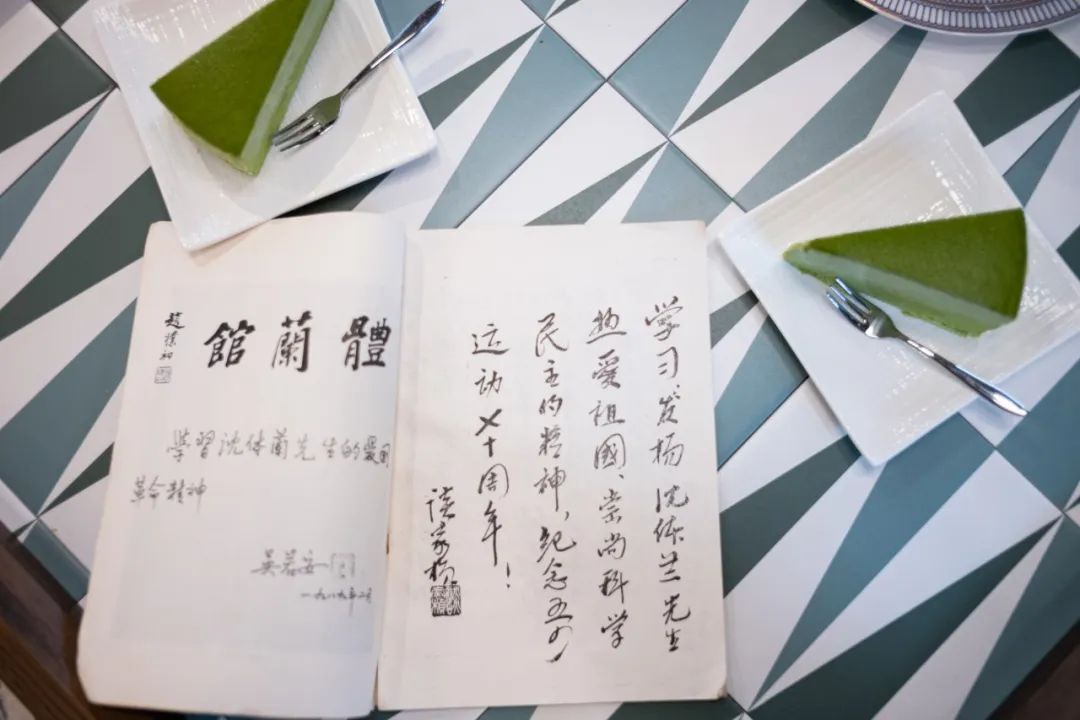 體蘭館
趙樸初
学習沈体蘭先生的愛国
革命精神
吴若安
一九八九年二月
学习发扬沈体兰先生
热爱祖國、崇尚科学
民主的精神，纪念五四
运动七十周年！
谈家桢